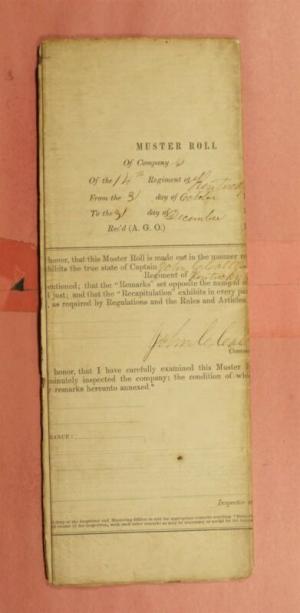 MUSTER ROLL
Of Company
Of the 14th Regiment of Kentucky
From the 31 day of October
To the 31 day of December
Rec'd (A. G. O.)
honor, that this Muster Roll is made out in the manner re
hibits the true state of Captain John
Regiment of Kentucky
entioned; that the "Remarks" set opposite the name of e
d just; and that the "Recapitulation" exhibits in every pa
as required by Regulations and the Rules and Articles
John C.
Comm
honor, that I have carefully examined this Muster R
minutely inspected the company; the condition of whi
r remarks hereunto annexed."
RRANCE:
Inspector a